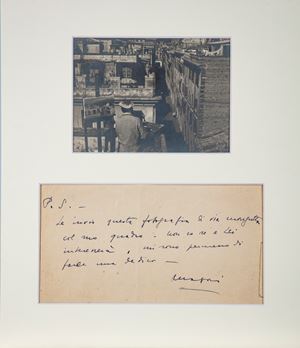 P.S. —
Le invio questa fotografia di via Margutta
col mio quadro: non so se a Lei
interesserà, mi sono permesso di
farle una dedica —